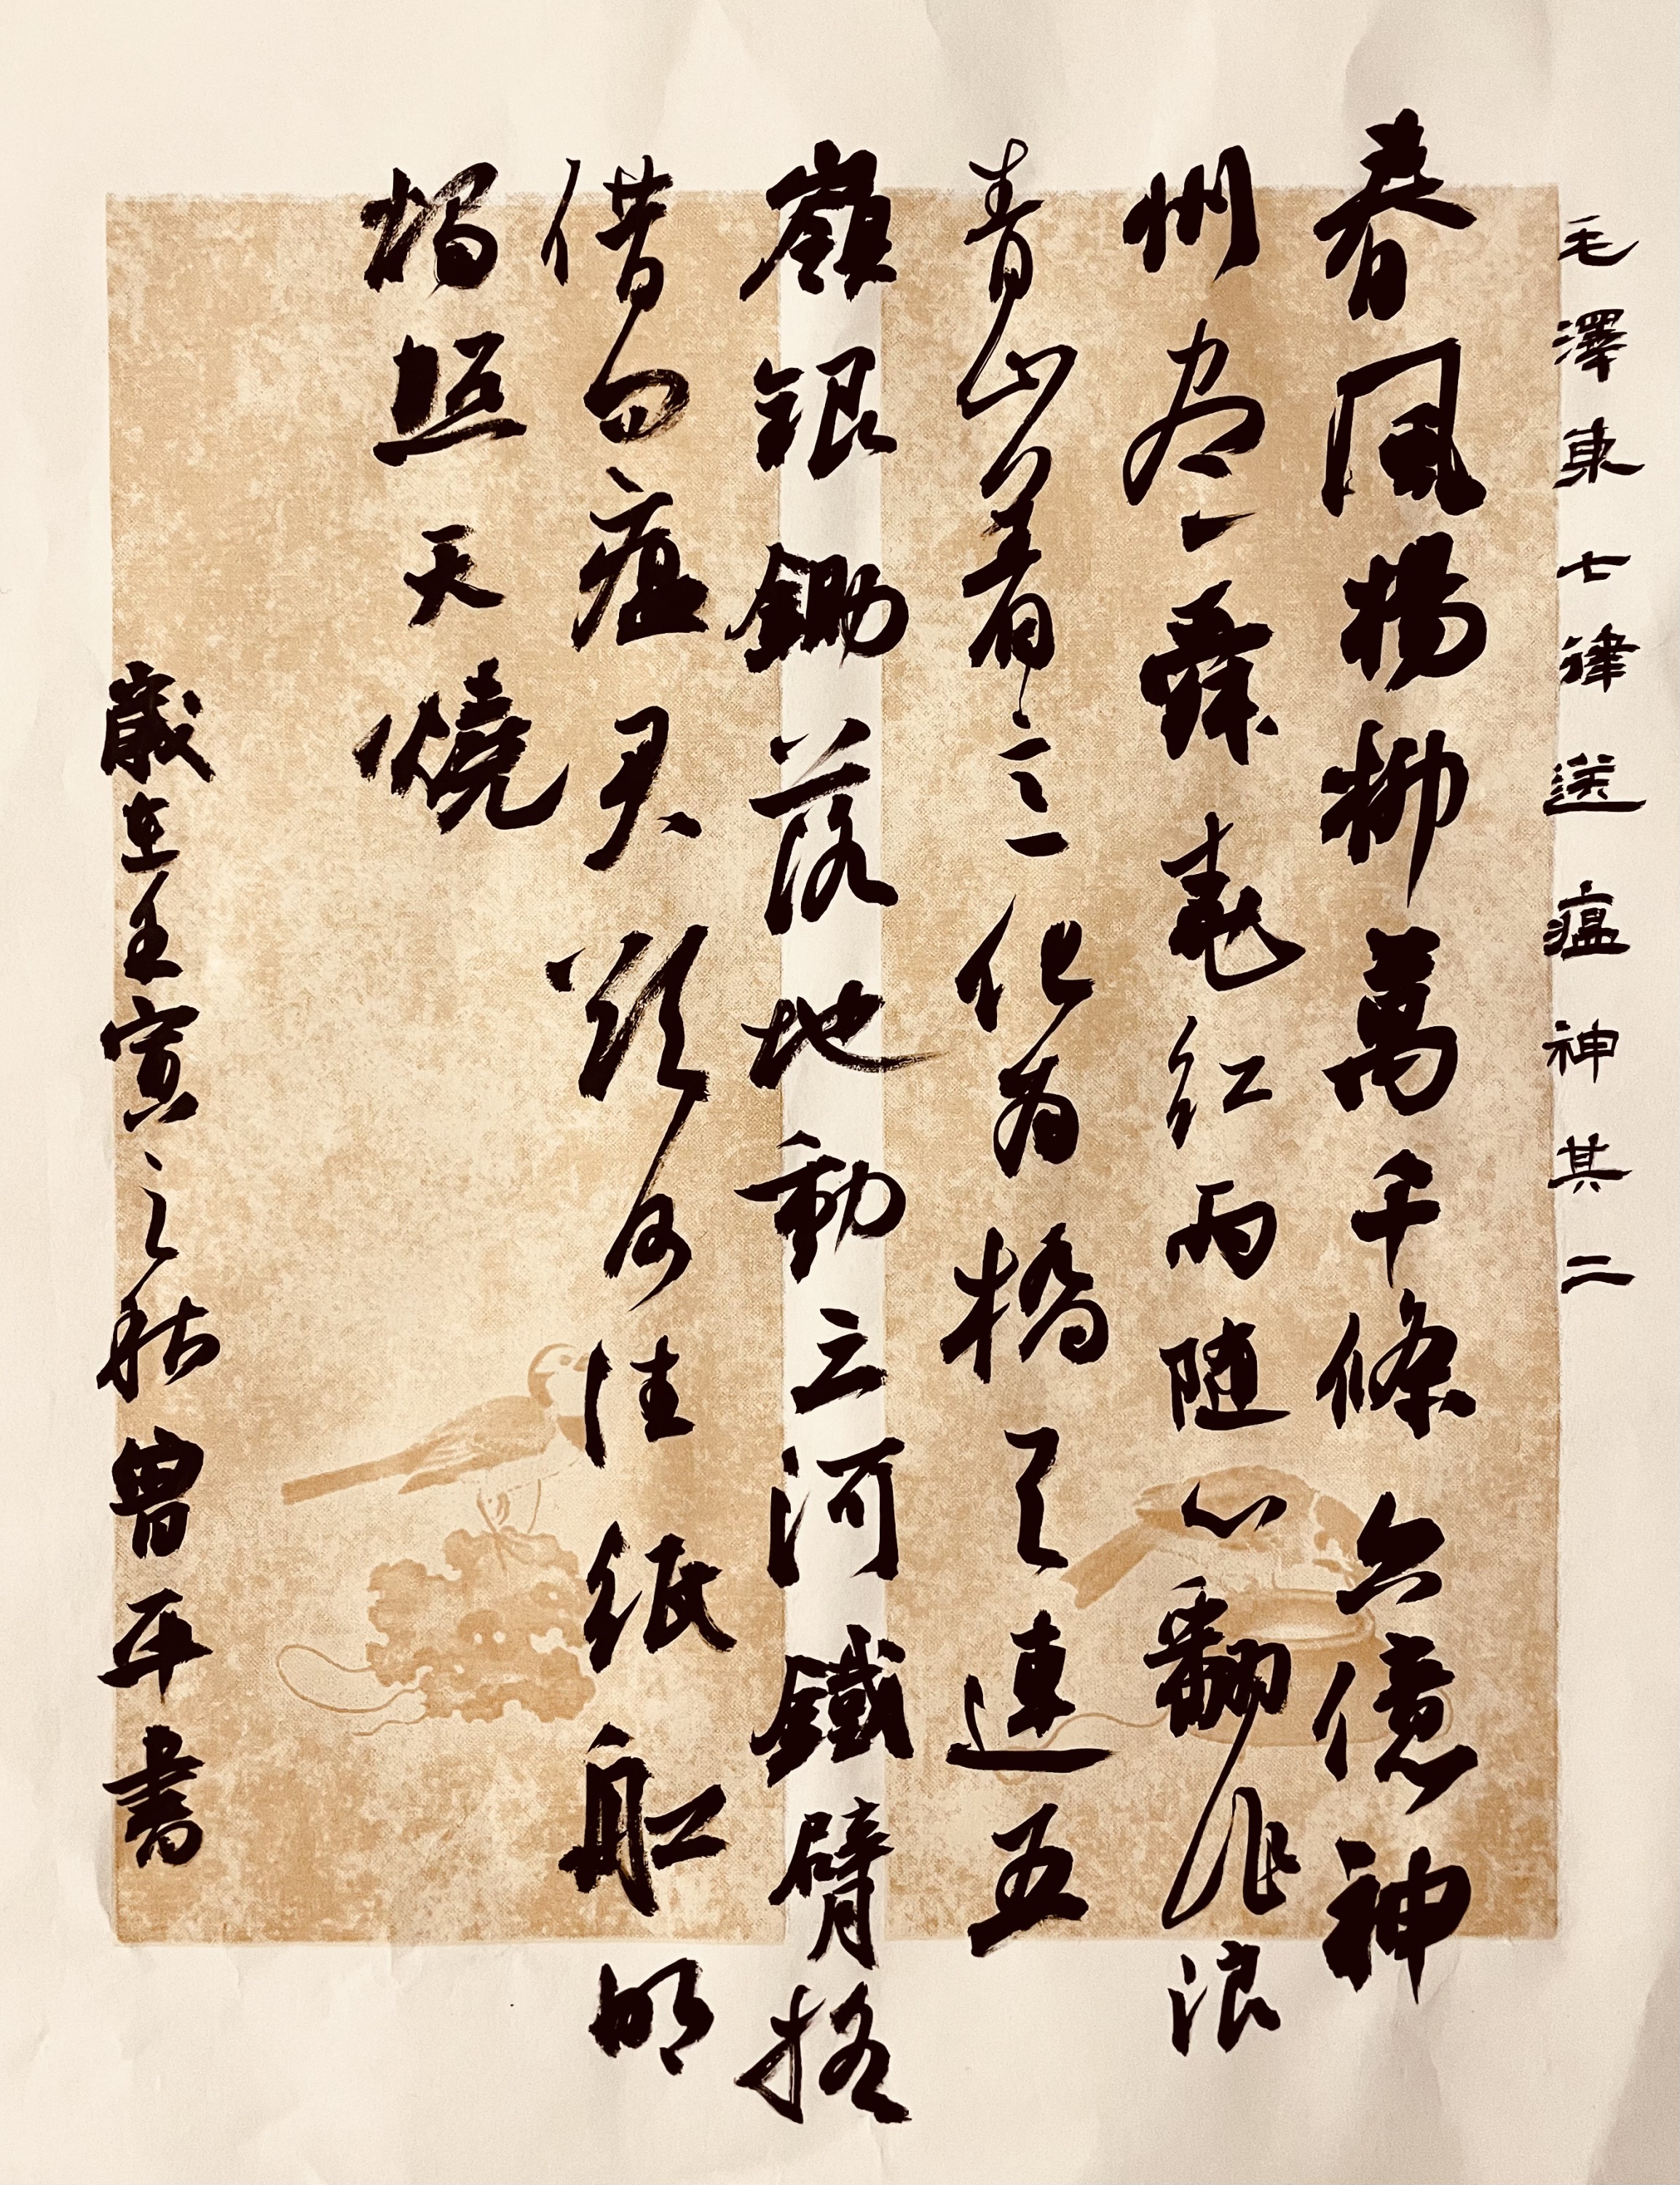 毛澤東七律送瘟神其二
春風楊柳萬千條六億神
州尽舜堯紅雨随心翻作浪
青山着意化为橋天連五
嶺銀鋤落地動三河鐵臂搖
借问瘟君欲何往紙船明
燭照天燒
歲在壬寅之秋曾平書